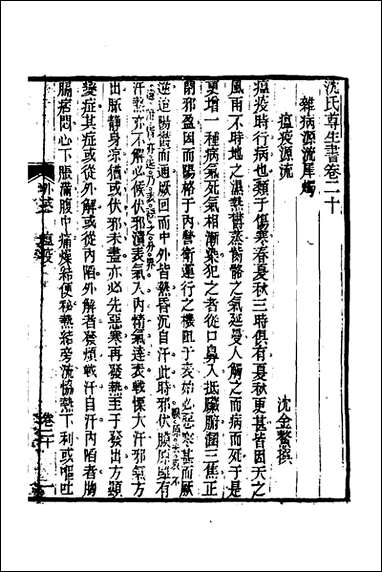 沈氏尊生書卷二十
雜病源流犀燭
沈金鰲撰
瘟疫源流
瘟疫時行病也類于傷寒春夏秋三時俱有夏秋更甚皆因天之
風雨不時地之濕熱鬱蒸胔骼之氣延蔓人觸之而病而死于是
更增一種病氣死氣相漸染犯之者從口鼻入抵臟腑溷三焦正
閉邪盈因而陽格于內營衛運行之機阻于表始必惡寒甚而厥
逆迨陽鬱而通厥回而中外皆熱昏沉自汗此時邪伏膜原縱有
汗熱亦不解必候伏邪潰表氣入內精氣達表戰慄大汗邪氣方
出脈靜身涼猶或伏邪未盡亦必先惡寒再發熱至于發出方顯
變症其症或從外解或從內陷外解者發癍戰汗自汗內陷者胸
膈痞悶心下脹滿腹中痛燥結便秘熱結旁流協熱下利或嘔吐
瘟疫
卷二十